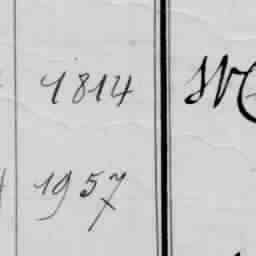 1814
1957